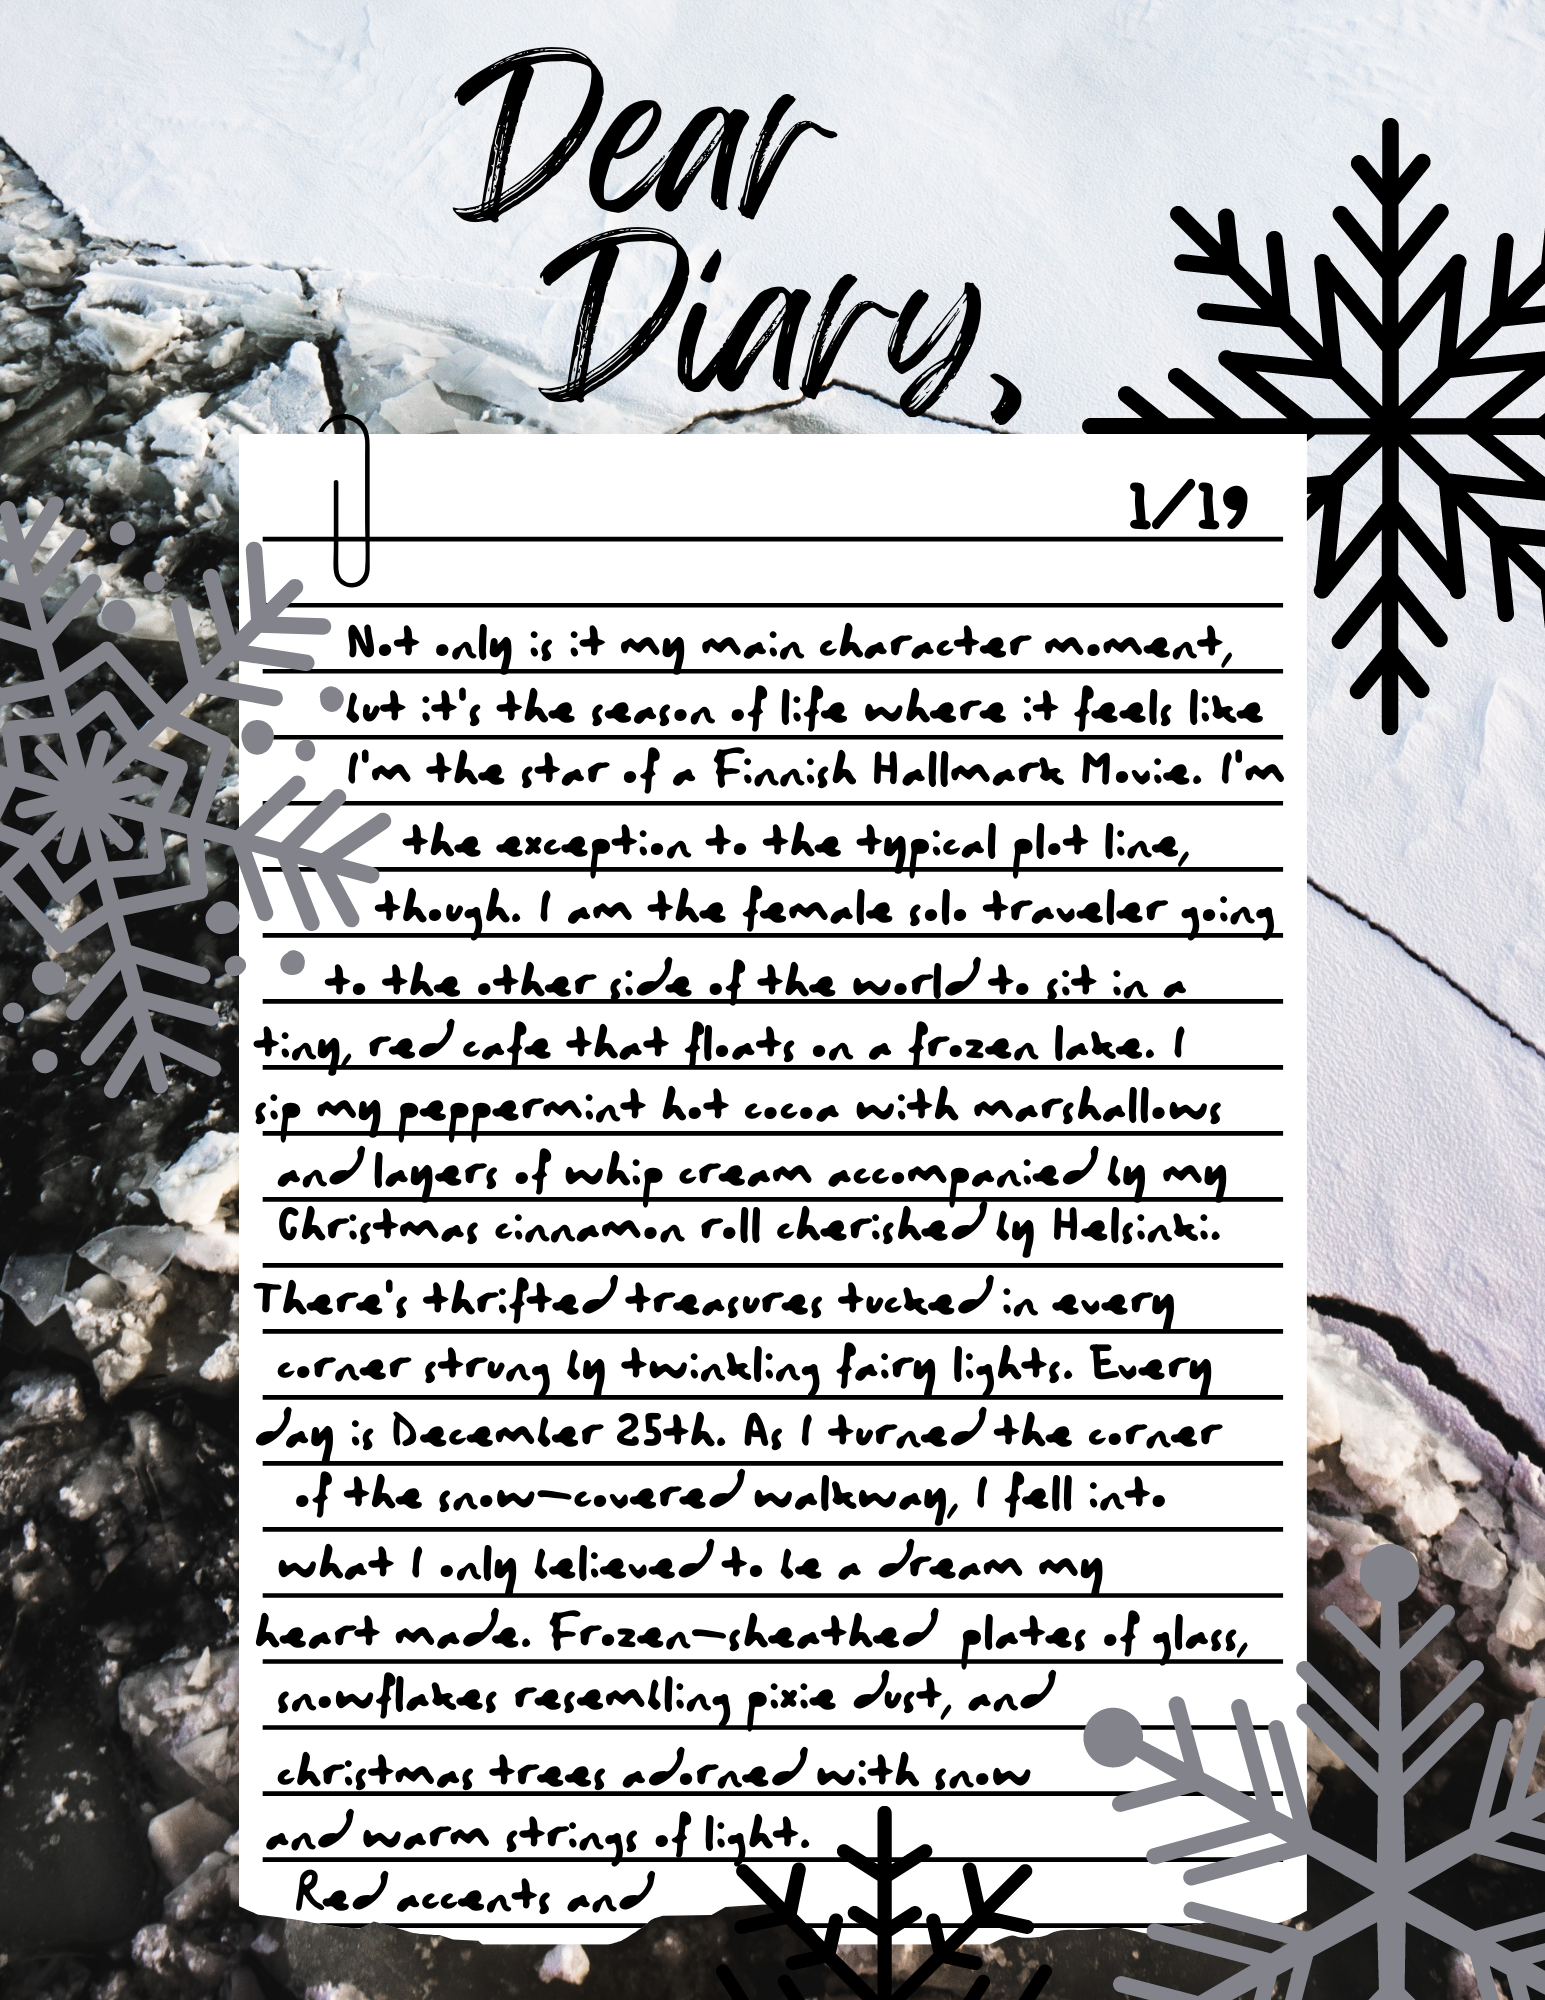 Dear
Diary,
1/19
Not only is it my main character moment,
but it's the season of life where it feels like
I'm the star of a Finnish Hallmark Movie. I'm
the exception to the typical plot line,
though. I am the female solo traveler going
to the other side of the world to sit in a
tiny, red cafe that floats on a frozen lake. I
sip my peppermint hot cocoa with marshallows
and layers of whip cream accompanied by my
Christmas cinnamon roll cherished by Helsinki.
There's thrifted treasures tucked in every
corner strung by twinkling fairy lights. Every
day is December 25th. As I turned the corner
of the snow-covered walkway, I fell into
what I only believed to be a dream my
heart made. Frozen-sheathed plates of glass,
snowflakes resembling pixie dust, and
christmas trees adorned with snow
and warm strings of light.
Red accents and